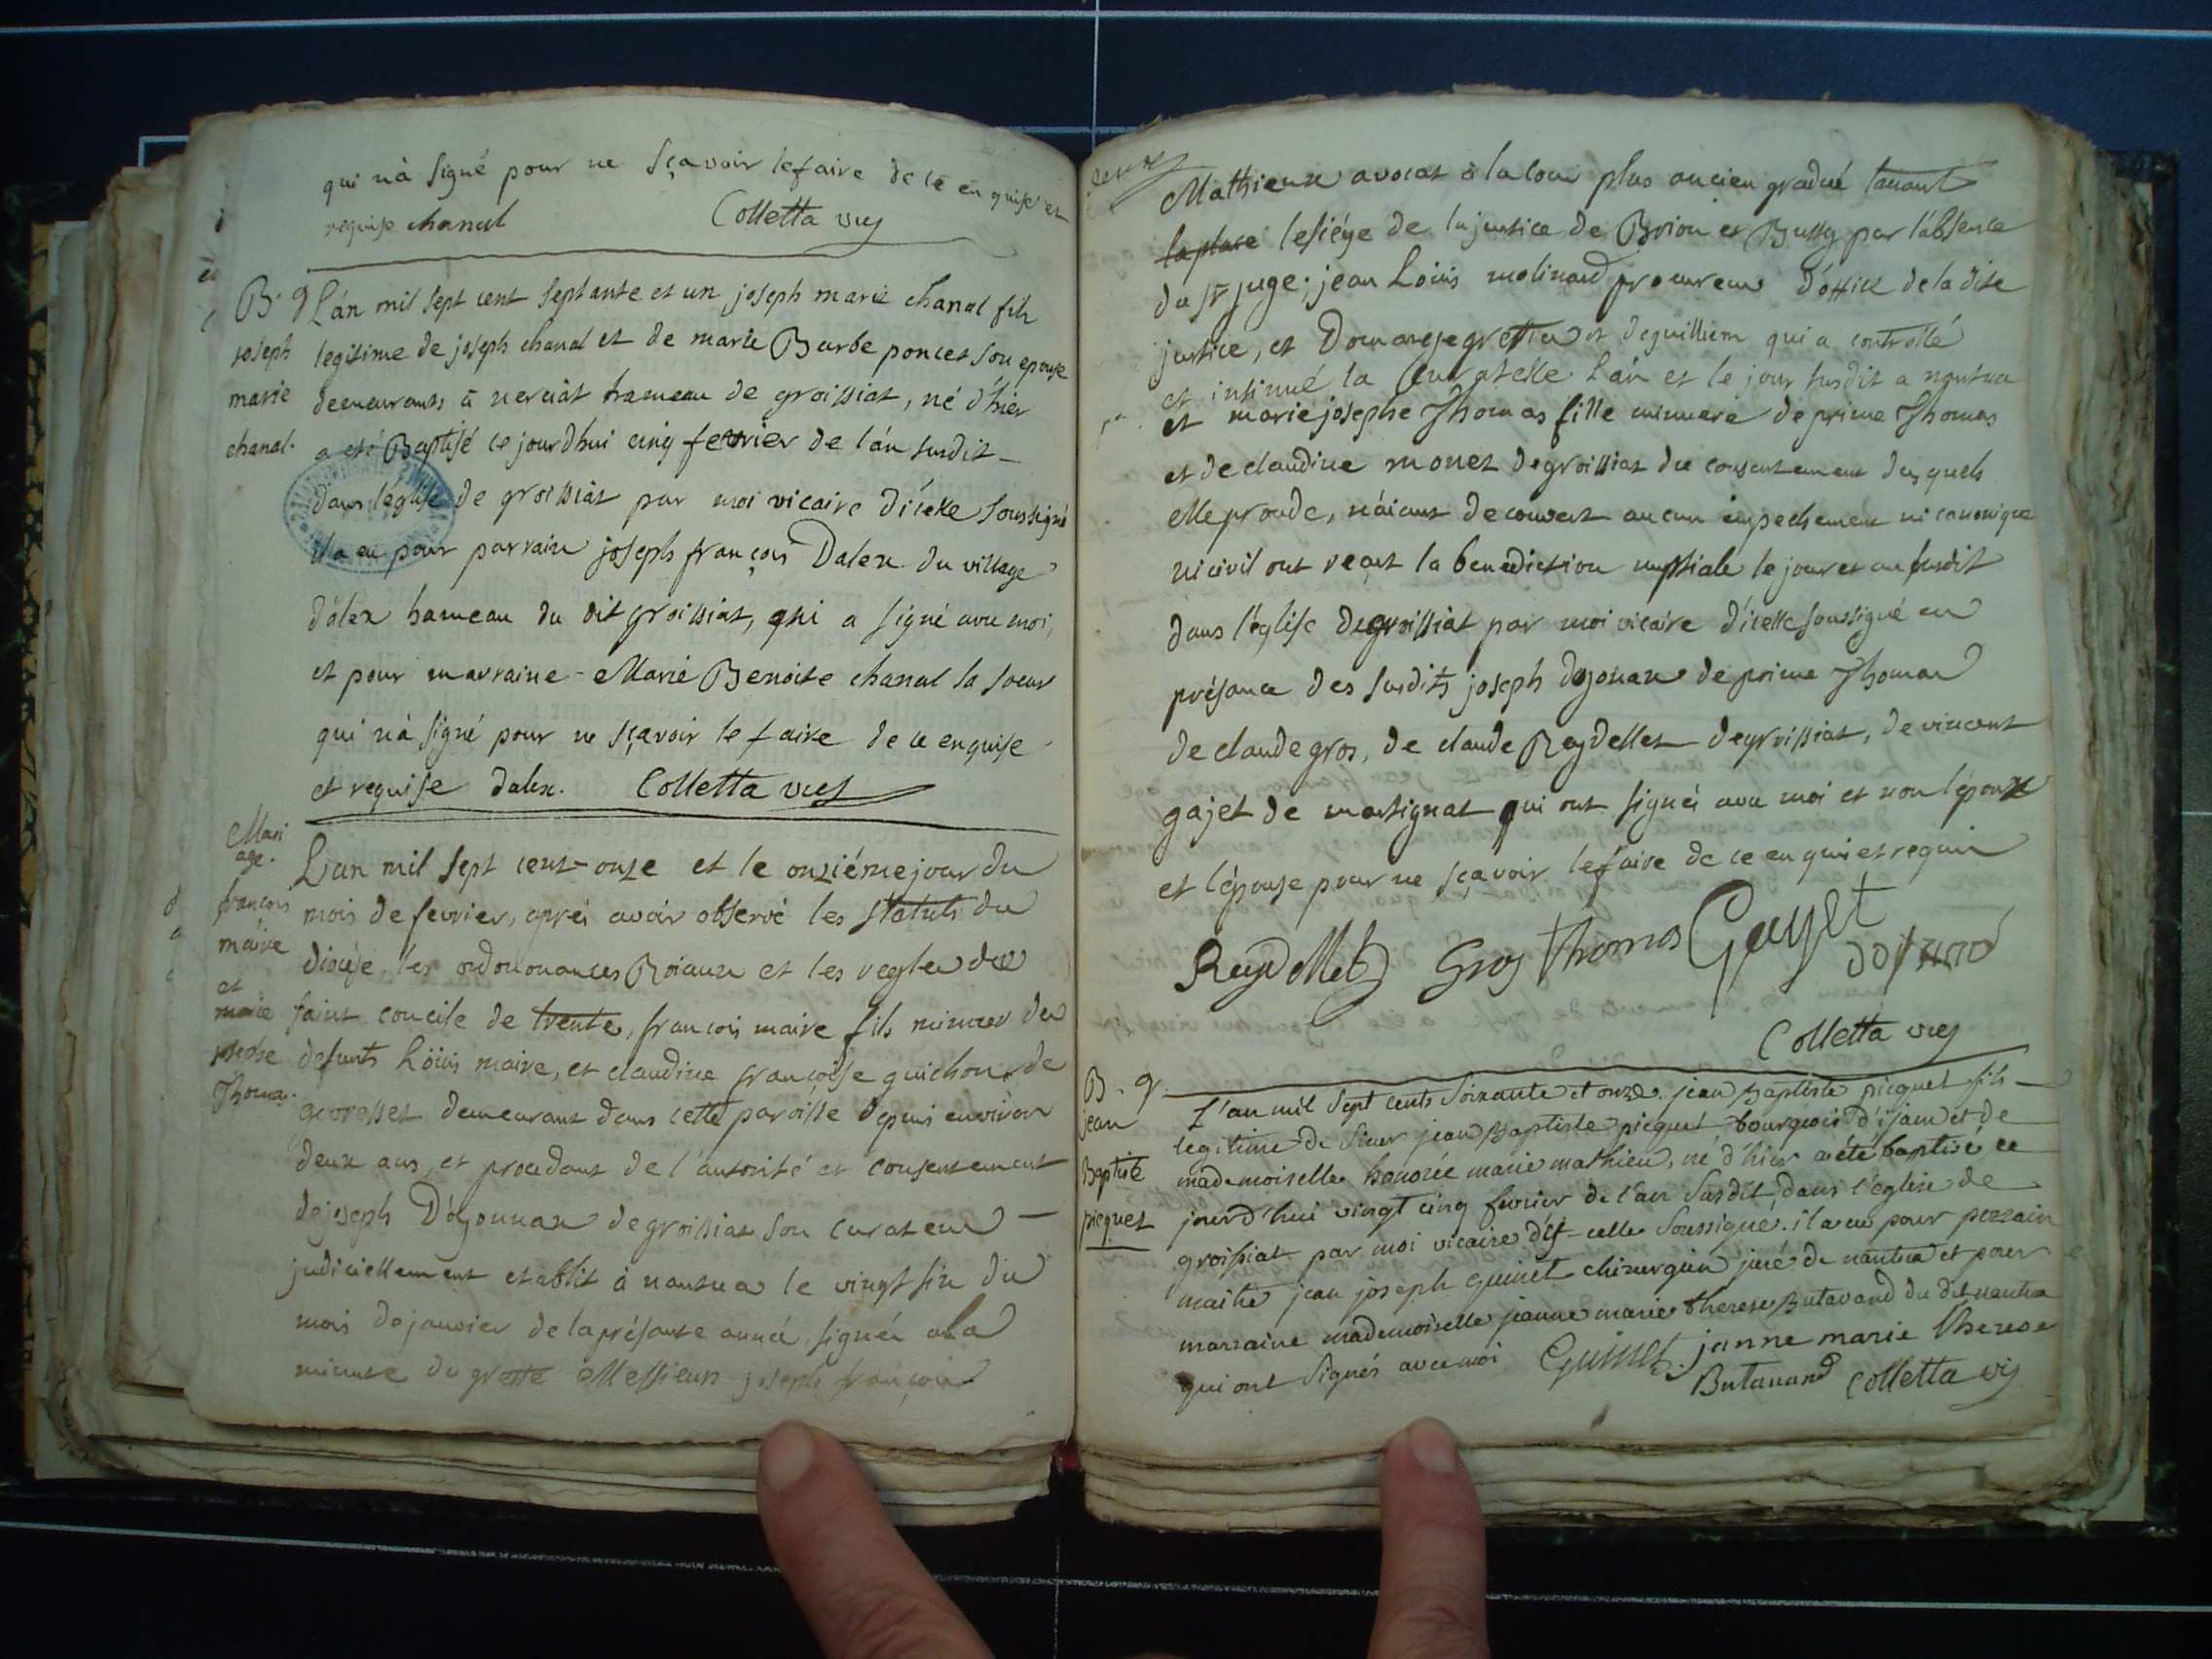 qui n'à signé pour ne sçavoir le faire de ce enquise et
requise chanal Colletta vic
B. g L'án mil sept cent septante et un joseph marie chanal fils
joseph legitime de joseph chanal et de marie Barbe poncet son epouse
marie demeurants à nerciat hameau de groissiat, né d'hier
chanal. a été Baptisé ce jourdhui cinq fevrier de l'án susdit
dans l'église de groissiat par moi vicaire d'icelle soussigné
il a eu pour parrain joseph françois Dalex du village
d'alex hameau du dit groissiat, qui a signé avec moi,
et pour marraine Marie Benoite chanal sa soeur
qui n'à signé pour ne sçavoir le faire de ce enquise
et requise dalex. Colletta vic
Mari
age.
françois
maire
et
marie
josephe
Thomas.
L'an mil sept cent onze et le onziéme jour du
mois de fevrier, aprés avoir observé les statuts du
diocése, les ordonnances Roiaux et les regles du
saint concile de trente, françois maire fils mineur de
defunts Löuis maire, et claudine françoise guichon de
gevresset demeurant dans cette paroisse depuis environ
deux ans, et procedant de l'autorité et consentement
de joseph D'oyonnax de groissiat son curateur
judiciellement etablit à nantua le vingt six du
mois de janvier de la présante année, signés a la
minute du greffe Messieurs joseph françois
Mathieux avocat à la cour plus ancien gradué tenant
la place le siége de la justice de Brion et Bussy par l'absence
du sr juge; jean Loüis molinard procureur d'office de la dite
justice, et Domange greffier et deguillien qui a controllé
et insinué la Curatelle l'án et le jour susdit a nantua
et marie josephe Thomas fille mineure de prime Thomas
et de claudine monet de groissiat du consentement des quels
elle procede, n'áiant decouvert aucun impechement ni canonique
ni civil ont reçut la benediction nuptiale le jour et an susdit
dans l'église de groissiat par moi vicaire d'icelle soussigné en
présance des susdits joseph doyonax de prime Thomas
de claude gros, de claude Reydellet de groissiat, de vincent
gajet de martignat qui ont signés avec moi et non l'époux
et l'épouse pour ne sçavoir le faire de ce enquis et requis
Reydellet Gros Thomas Gayet
Colletta vic
B. g.
jean
Baptiste
picquet
L'an mil sept cents soixante et onze. jean Baptiste picquet fils
legitime de sieur jean Baptiste picquet bourgeois d'ijean et de
mademoiselle honorée marie mathieu, né d'hier a été baptisé ce
jourd'hui vingt cinq fevrier de l'an susdit dans l'eglise de
groissiat par moi vicaire d'icelle soussigné. il a eu pour parrain
maitre jean joseph guinet chirurgien juré de nantua et pour
marraine mademoiselle jeanne marie therese Butavand du dit nantua
qui ont signés avec moi Guinet. janne marie therese
Butavand Colletta vic